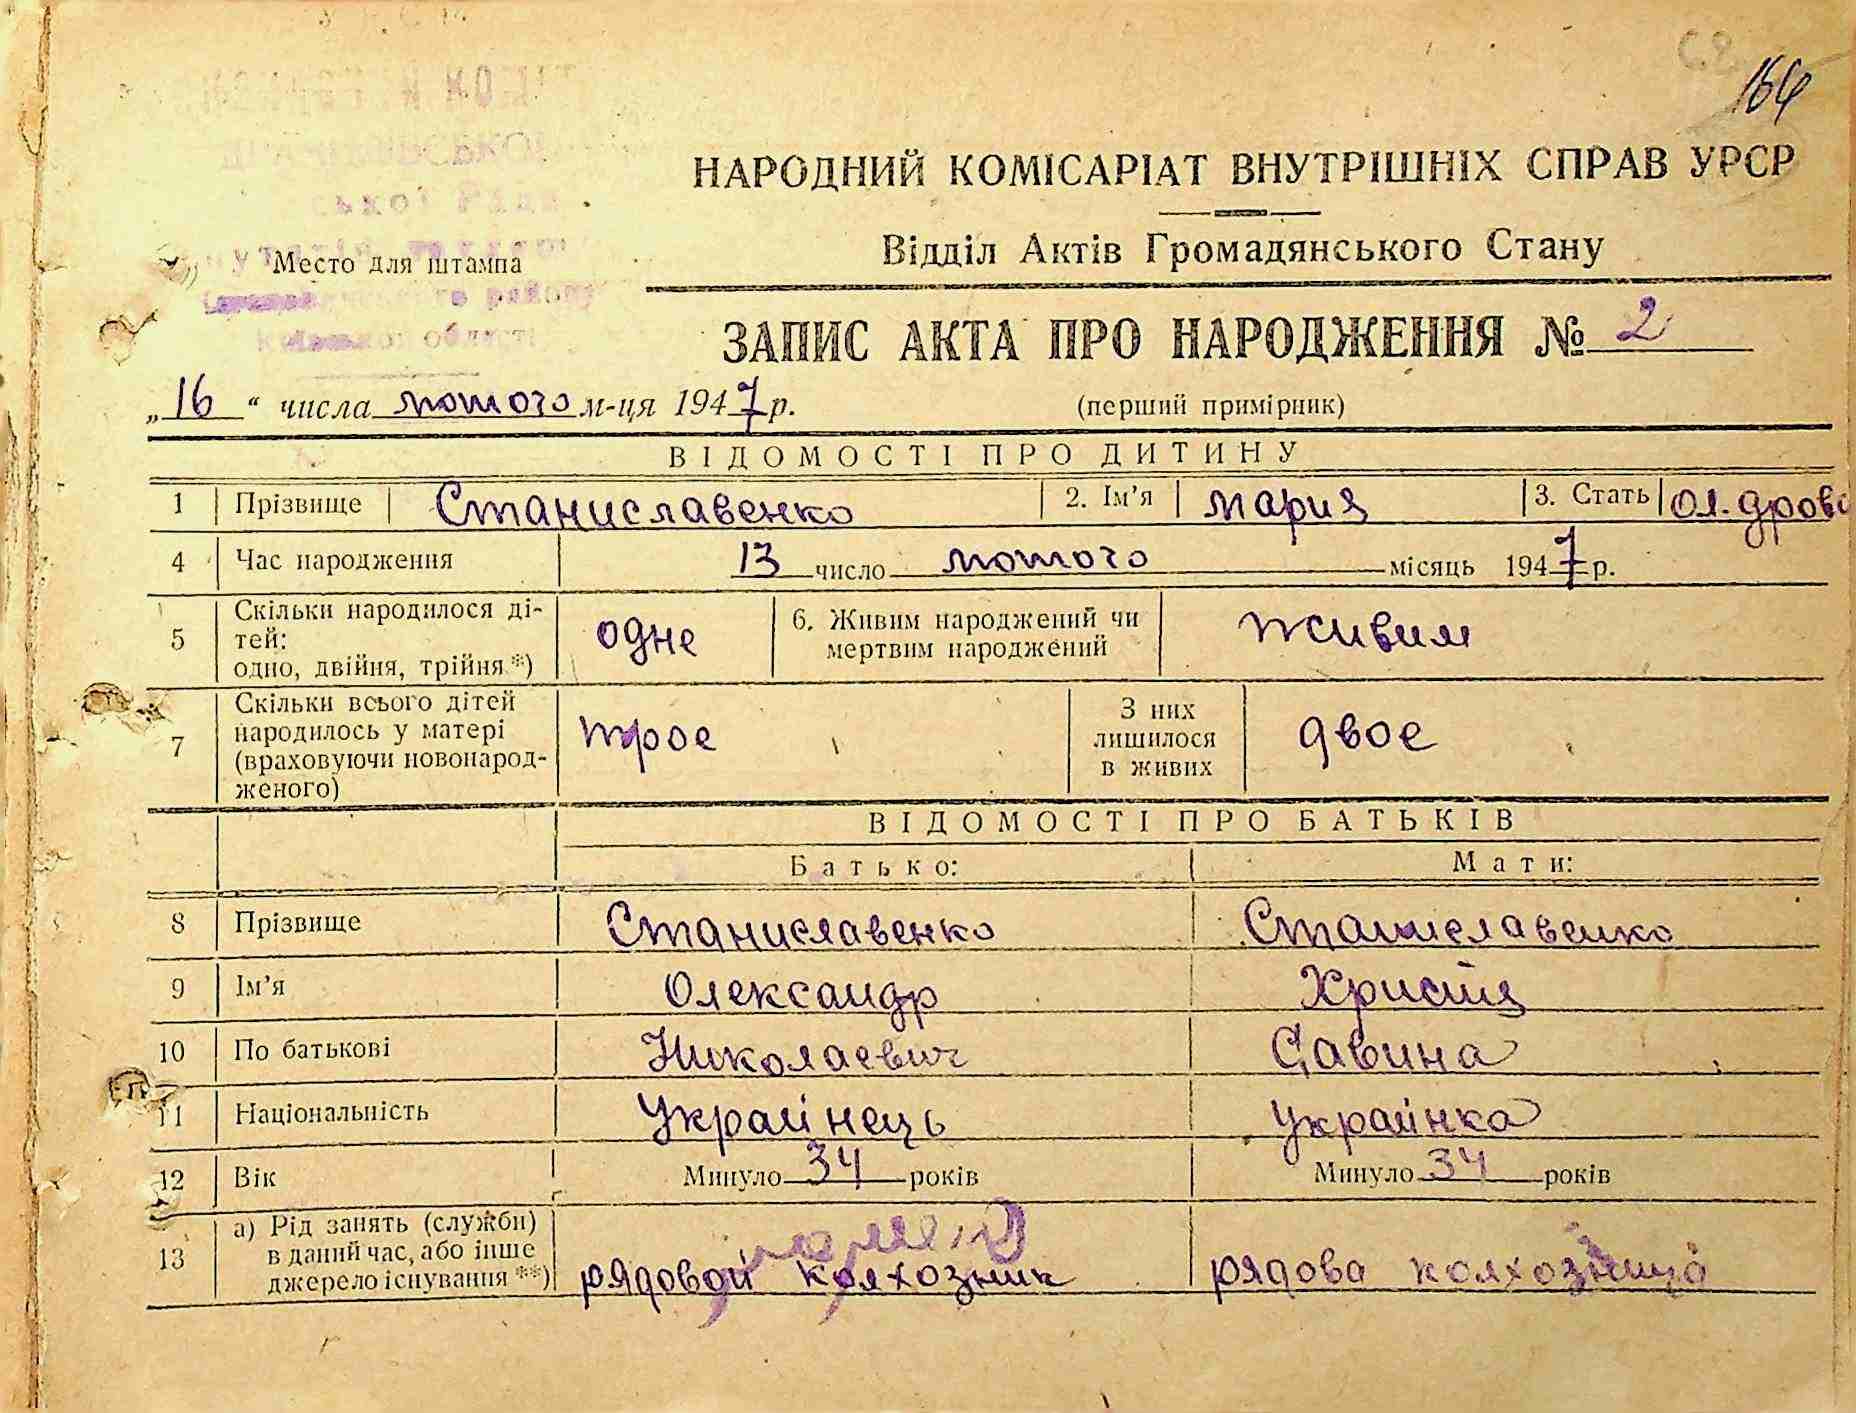 164
НАРОДНИЙ КОМІСАРІАТ ВНУТРІШНІХ СПРАВ УРСР
Відділ Актів Громадянського Стану
Место для штампа
району
області
ЗАПИС АКТА ПРО НАРОДЖЕННЯ № 2
„16“ числа лютого м-ця 1947 р. (перший примірник)
ВІДОМОСТІ ПРО ДИТИНУ
1 Прізвище Станиславенко 2. Ім'я Мария 3. Стать
4 Час народження 13 число лютого місяць 1947 р.
5 Скільки народилося ді-
тей:
одно, двійня, трійня *) одне 6. Живим народжений чи
мертвим народжений живим
7 Скільки всього дітей
народилось у матері
(враховуючи новонарод-
женого) трое З них
лишилося
в живих двое
ВІДОМОСТІ ПРО БАТЬКІВ
Батько: Мати:
8 Прізвище Станиславенко Станиславенко
9 Ім'я Олександр Христя
10 По батькові Николаевич Савина
11 Національність Украйнець Украйнка
12 Вік Минуло 34 років Минуло 34 років
13 а) Рід занять (служби)
в даний час, або інше
джерело існування **) рядовой колхозник рядова колхозница